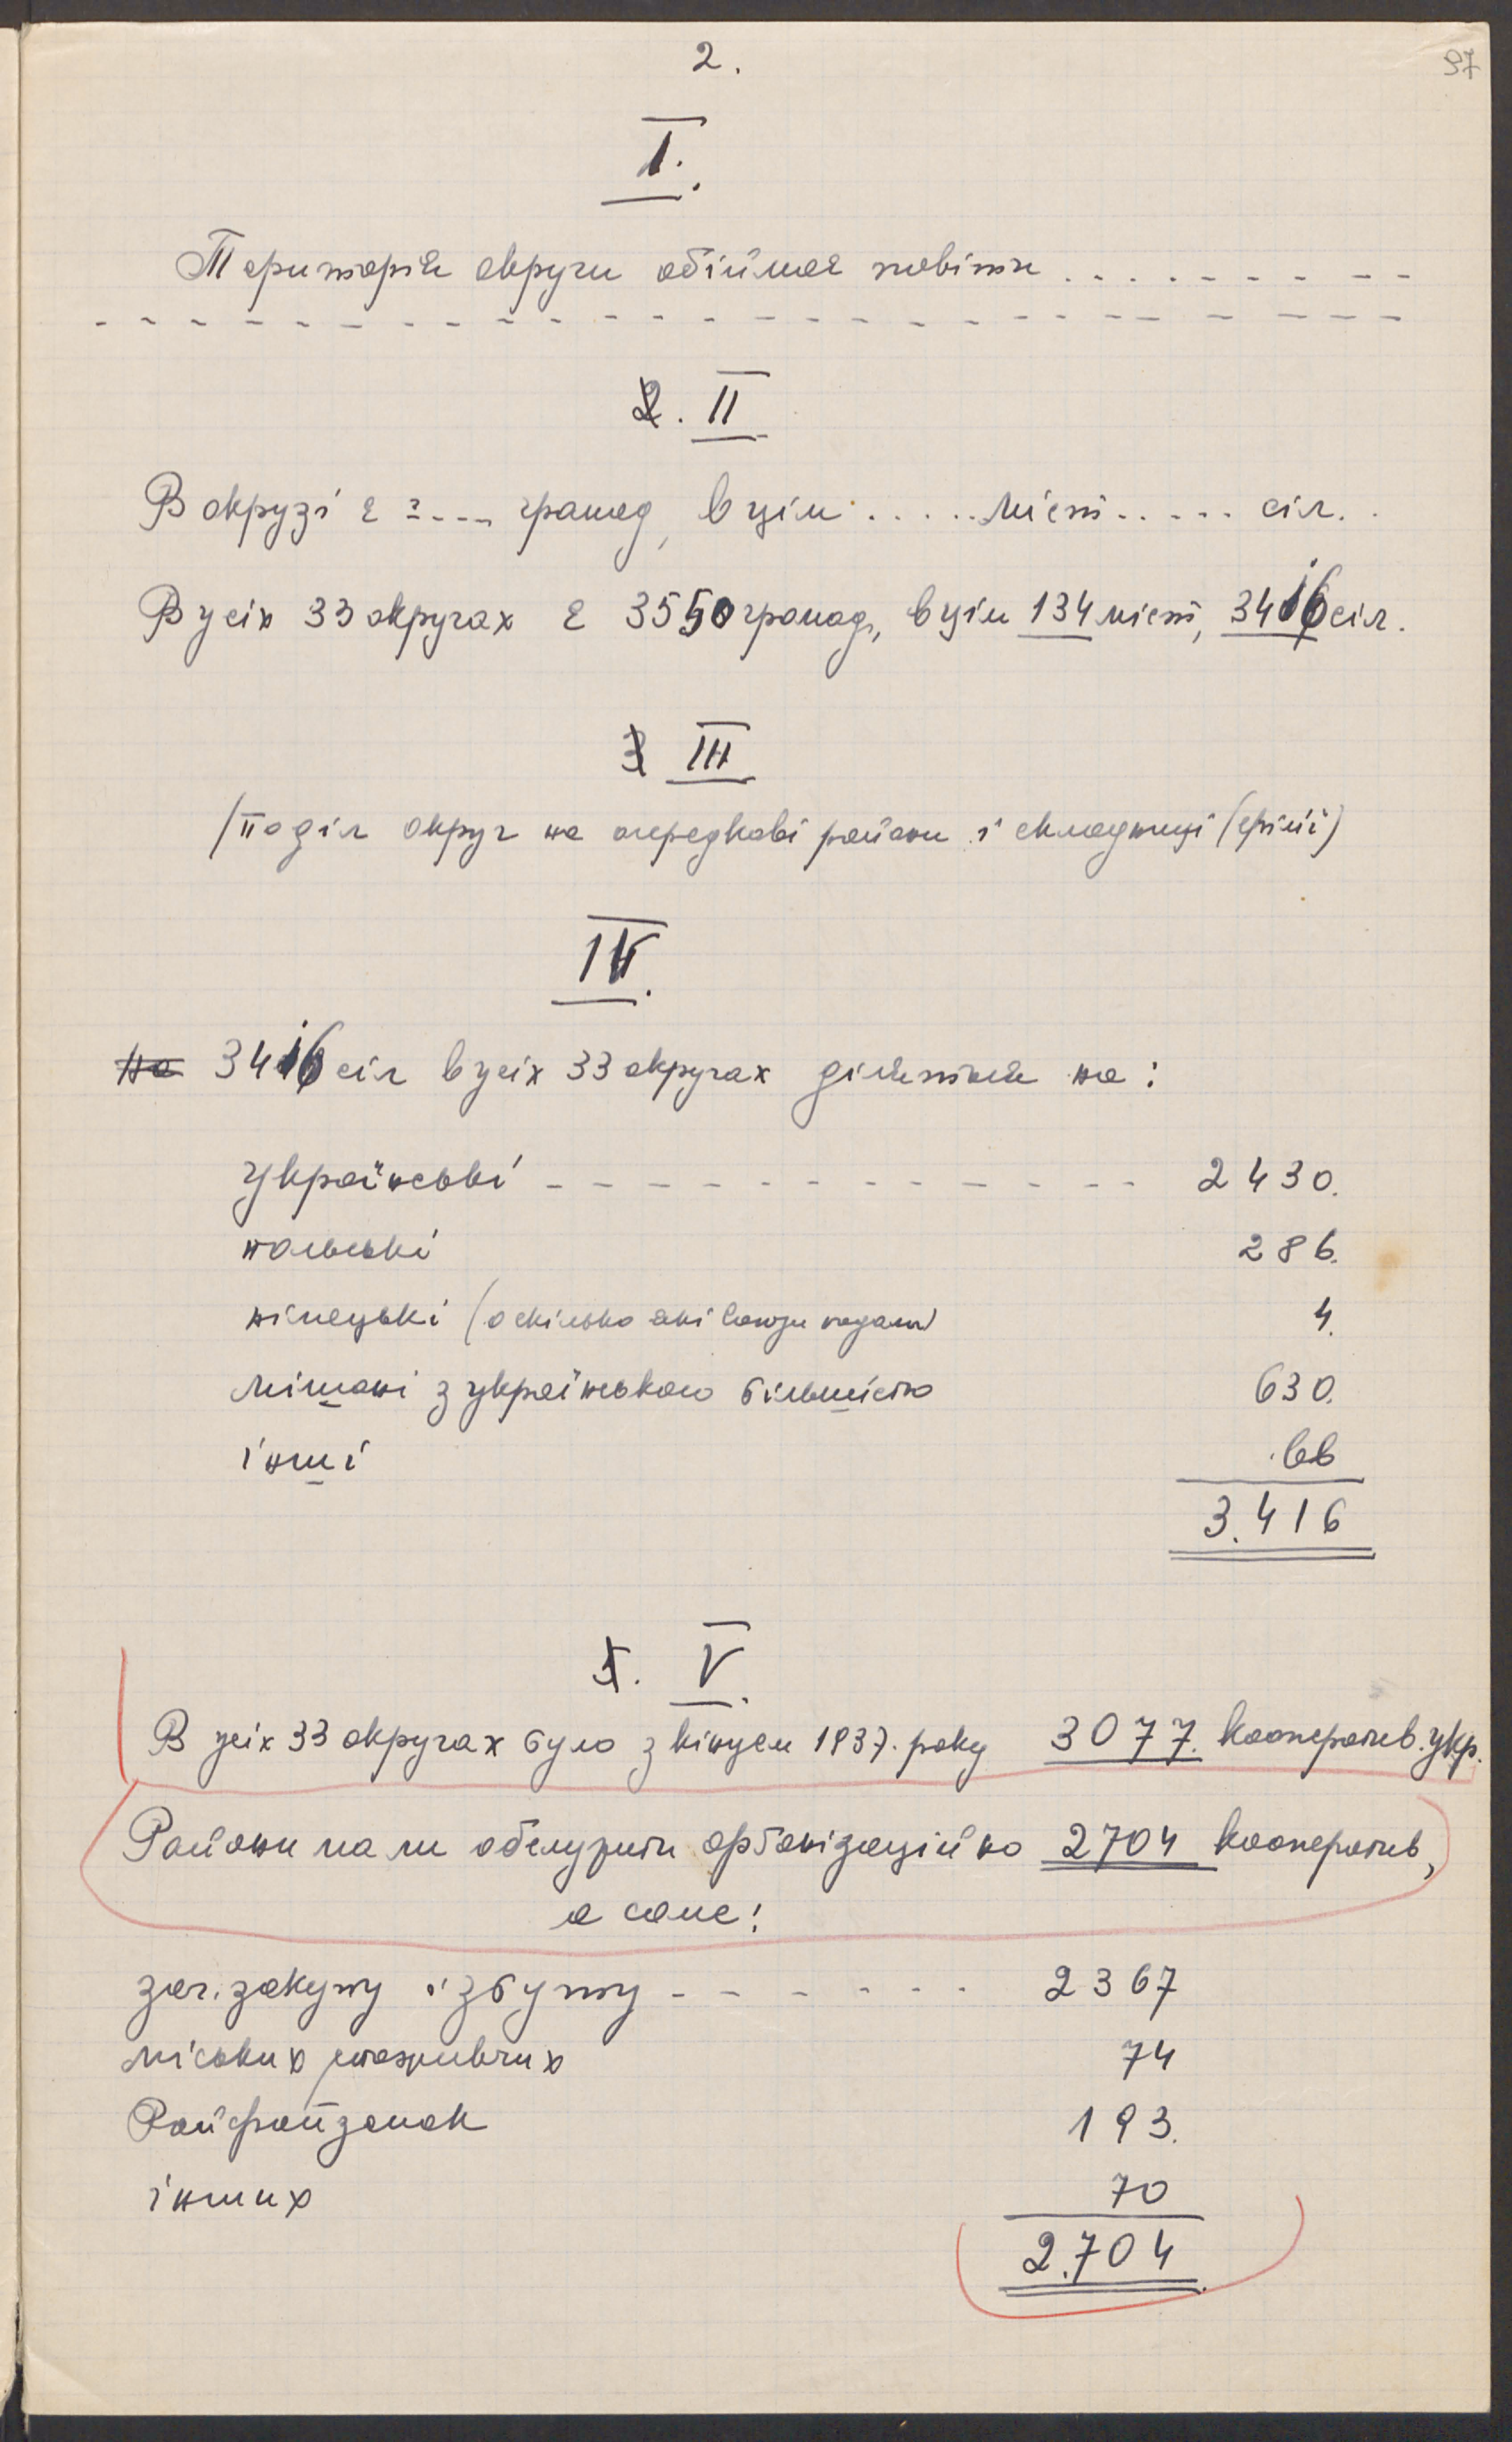 2.
97
I.
Територія округи обіймає повіти . . . . . . . . . .
- - - - - - - - - - - - - - - - - - - - - - - -
2. II
В окрузі є ? .... громад, в цім ..... міст ..... сіл. .
В усіх 33 округах є 3550 громад, в цім 134 міст, 3416 сіл.
3 III
/поділ округ на осередкові райони і складниці (філії)
IV.
На 3416 сіл в усіх 33 округах діляться на:
українські - - - - - - - - - - - 2430.
польські 286.
німецькі (оскілько які Союзи подали) 4.
мішані з українською більшістю 630.
інші 66
3.416
5. V.
В усіх 33 округах було з кінцем 1937. року 3077. кооператив. укр.
Райони мали обслужити орґанізаційно 2704 кооператив,
а саме:
заг. закупу і збуту - - - - - - 2367
міських споживчих 74
Райфайзенок 193.
інших 70
2.704